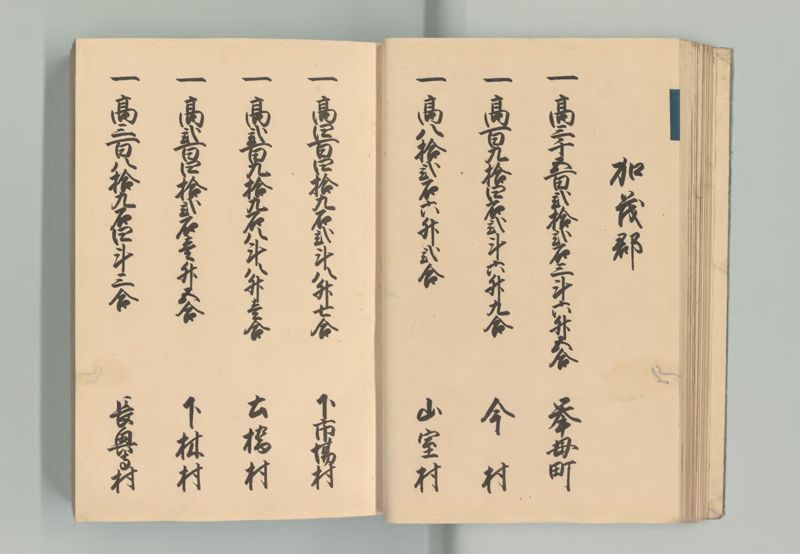 加茂郡
一 高三千五百弐拾弐石三斗六升五合 挙母町
一 高百九拾四石弐斗六升九合 今村
一 高八拾弐石六升弐合 山室村
一 高四百四拾九石弐斗八升七合 下市場村
一 高弐百九拾九石八斗八升壱合 本橋村
一 高弐百四拾弐石壱升五合 下林村
一 高三百八拾九石四斗三合 長興寺村